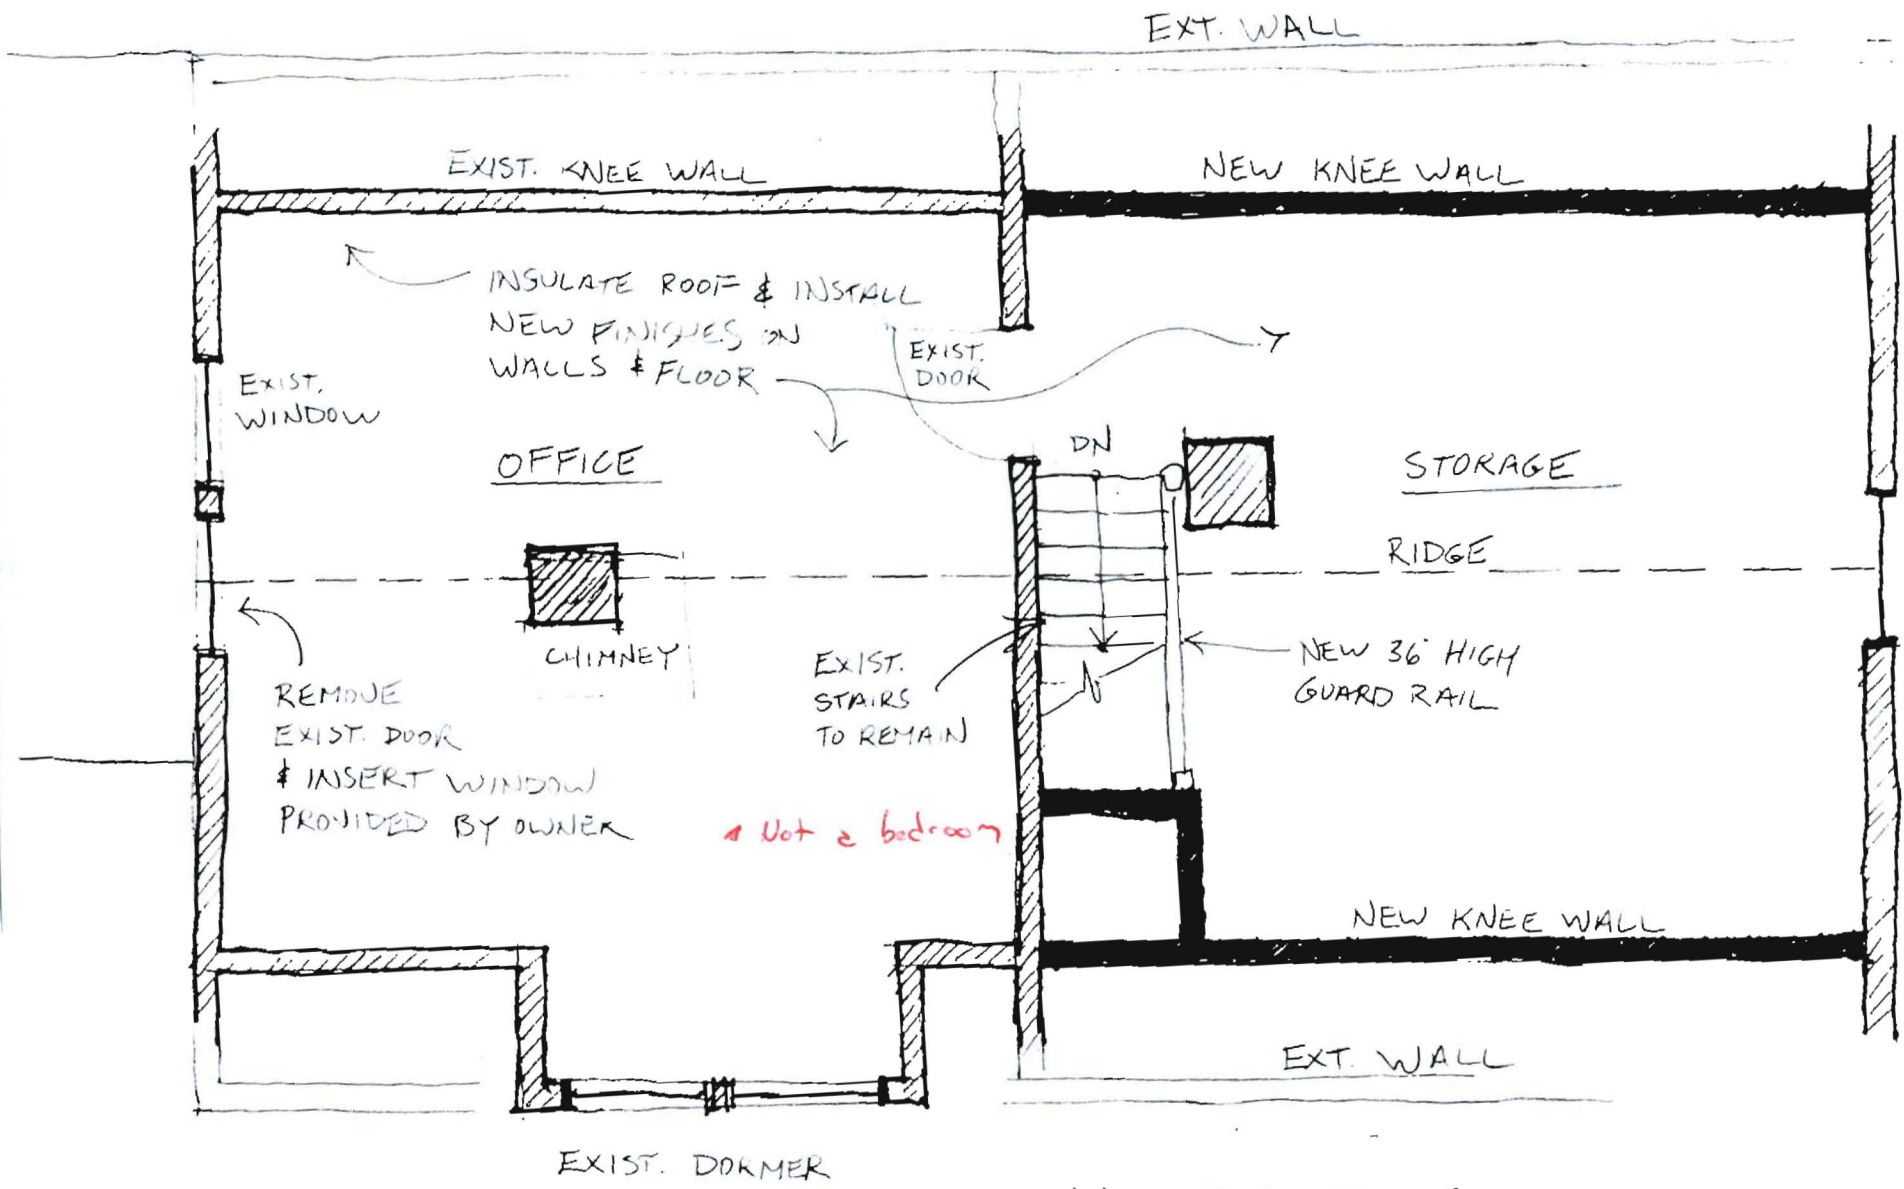 EXT. WALL
EXIST. KNEE WALL
NEW KNEE WALL
INSULATE ROOF & INSTALL
NEW FINISHES ON
WALLS & FLOOR
EXIST.
DOOR
EXIST.
WINDOW
OFFICE
DN
STORAGE
RIDGE
CHIMNEY
EXIST.
STAIRS
TO REMAIN
NEW 36" HIGH
GUARD RAIL
REMOVE
EXIST. DOOR
& INSERT WINDOW
PROVIDED BY OWNER
Not a bedroom
NEW KNEE WALL
EXT. WALL
EXIST. DORMER